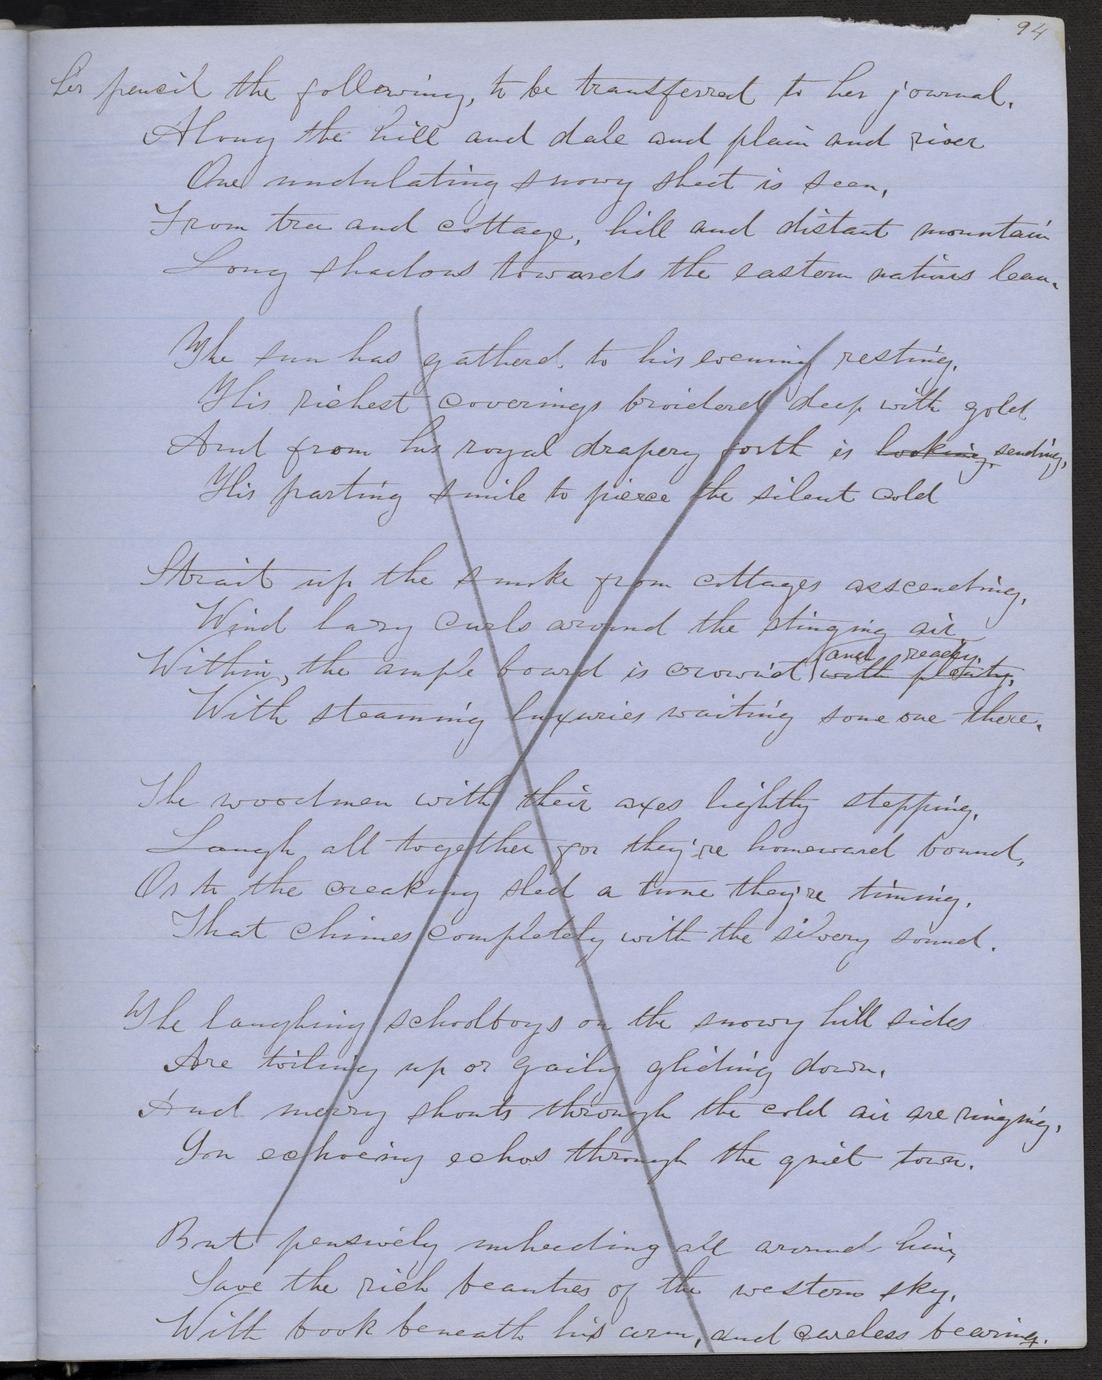 94
her pencil the following, to be transferred to her journal.
Along the hill and dale and plain and river
One undulating snowy sheet is seen,
From tree and cottage, hill and distant mountain
Long shadows towards the eastern nations lean.
The sun has gatherd to his evening resting,
His richest coverings broidered deep with gold
And from his royal drapery forth is looking, sending,
His parting smile to pierce the silent cold
Strait up the smoke from cottages asscending,
Wind lazy curls around the stinging air,
and ready,
Within, the ample board is crown'd with plenty,
With steaming luxuries waiting some one there.
The woodmen with their axes lightly stepping,
Laugh all together for they're homeward bound,
Or to the creaking sled a tune they're timing,
That chimes completely with the silvery sound.
The laughing schoolboys on the snowy hill sides
Are toiling up or gaily gliding down,
And merry shouts through the cold air are ringing,
In echoeing echos through the quiet town.
But pensively unheeding all around him,
Save the rich beauties of the western sky,
With book beneath his arm, and careless bearing.